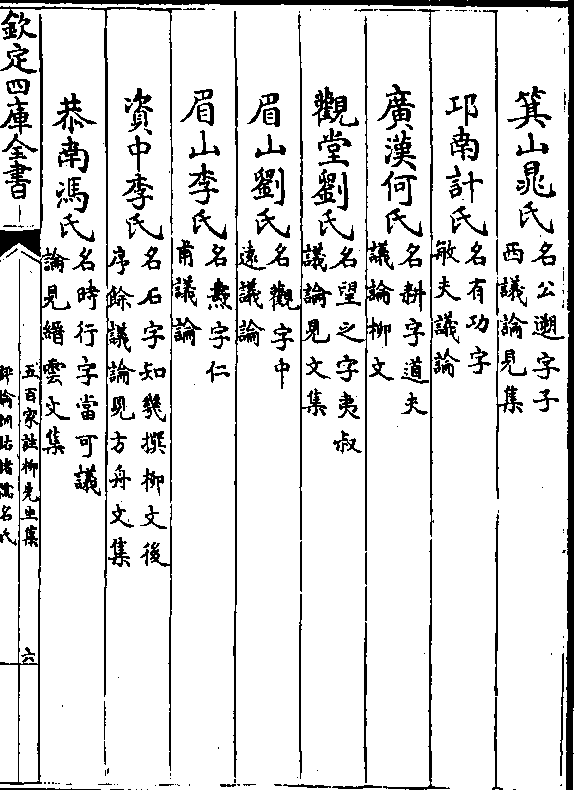 箕山晁氏名公遡字子西議論見集
邛南計氏名有功字敏夫議論
廣漢何氏名耕字道夫議論柳文
觀堂劉氏名望之字夷叔議論見文集
眉山劉氏名觀字中遠議論
眉山李氏名燾字仁甫議論
資中李氏名石字知幾撰柳文後序餘議論見方舟文集
恭南馮氏名時行字當可議論見縉雲文集
欽定四庫全書
五百家註柳先生集
評論訓詁諸儒名氏
六